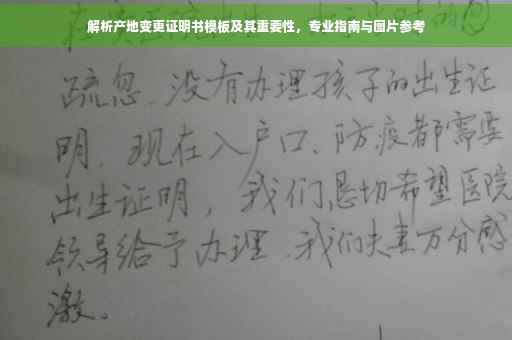 解析产地变更证明书模板及其重要性，专业指南与图片参考
疏忽、没有办理孩子的出生证
明、现在入户口、防疫都需要
出生证明，我们恳切希望医院
领导给予办理、我们夫妻万分感
激。